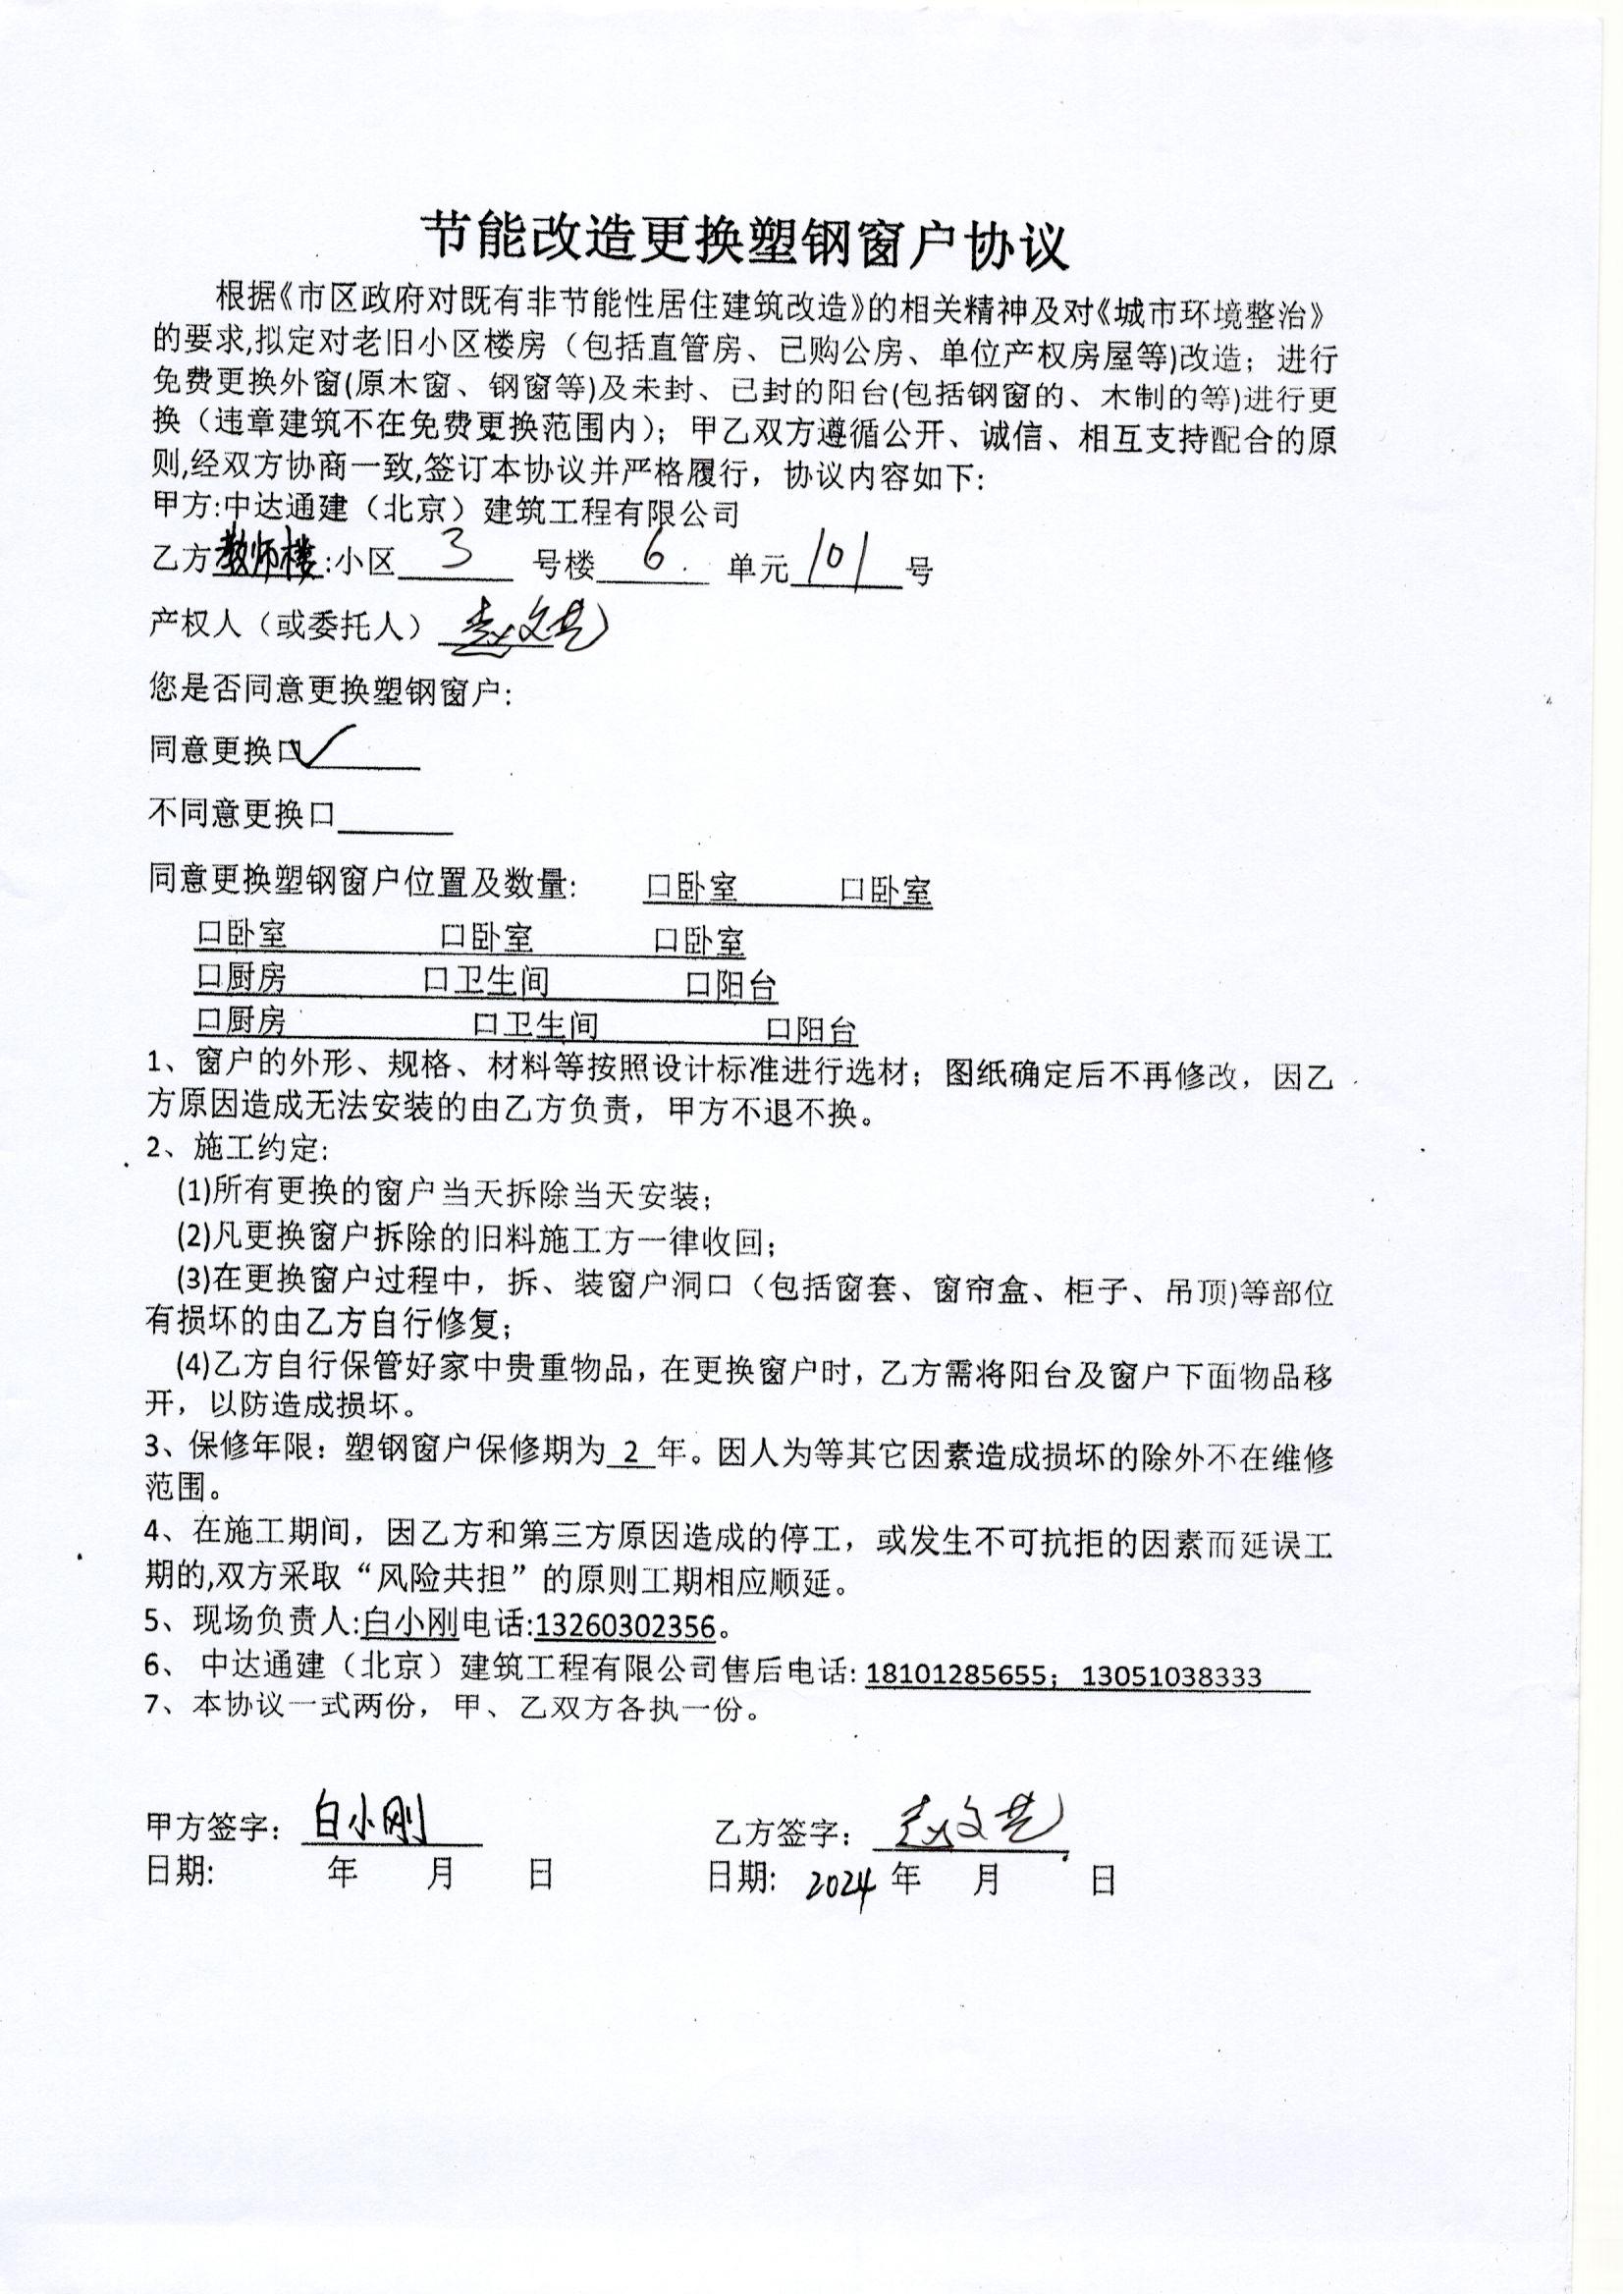 节能改造更换塑钢窗户协议
根据《市区政府对既有非节能性居住建筑改造》的相关精神及对《城市环境整治》
的要求,拟定对老旧小区楼房（包括直管房、已购公房、单位产权房屋等)改造；进行
免费更换外窗(原木窗、钢窗等)及未封、已封的阳台(包括钢窗的、木制的等)进行更
换（违章建筑不在免费更换范围内）；甲乙双方遵循公开、诚信、相互支持配合的原
则,经双方协商一致,签订本协议并严格履行，协议内容如下:
甲方:中达通建（北京）建筑工程有限公司
乙方教师楼:小区 3 号楼 6 单元 101 号
产权人（或委托人）赵文艺
您是否同意更换塑钢窗户:
同意更换口✓
不同意更换口
同意更换塑钢窗户位置及数量: 口卧室 口卧室
口卧室 口卧室 口卧室
口厨房 口卫生间 口阳台
口厨房 口卫生间 口阳台
1、窗户的外形、规格、材料等按照设计标准进行选材；图纸确定后不再修改，因乙
方原因造成无法安装的由乙方负责，甲方不退不换。
2、施工约定:
(1)所有更换的窗户当天拆除当天安装；
(2)凡更换窗户拆除的旧料施工方一律收回；
(3)在更换窗户过程中，拆、装窗户洞口（包括窗套、窗帘盒、柜子、吊顶)等部位
有损坏的由乙方自行修复；
(4)乙方自行保管好家中贵重物品，在更换窗户时，乙方需将阳台及窗户下面物品移
开，以防造成损坏。
3、保修年限：塑钢窗户保修期为 2 年。因人为等其它因素造成损坏的除外不在维修
范围。
4、在施工期间，因乙方和第三方原因造成的停工，或发生不可抗拒的因素而延误工
期的,双方采取“风险共担”的原则工期相应顺延。
5、现场负责人:白小刚电话:13260302356。
6、中达通建（北京）建筑工程有限公司售后电话: 18101285655；13051038333
7、本协议一式两份，甲、乙双方各执一份。
甲方签字：白小刚 乙方签字：赵文艺
日期: 年 月 日 日期: 2024 年 月 日